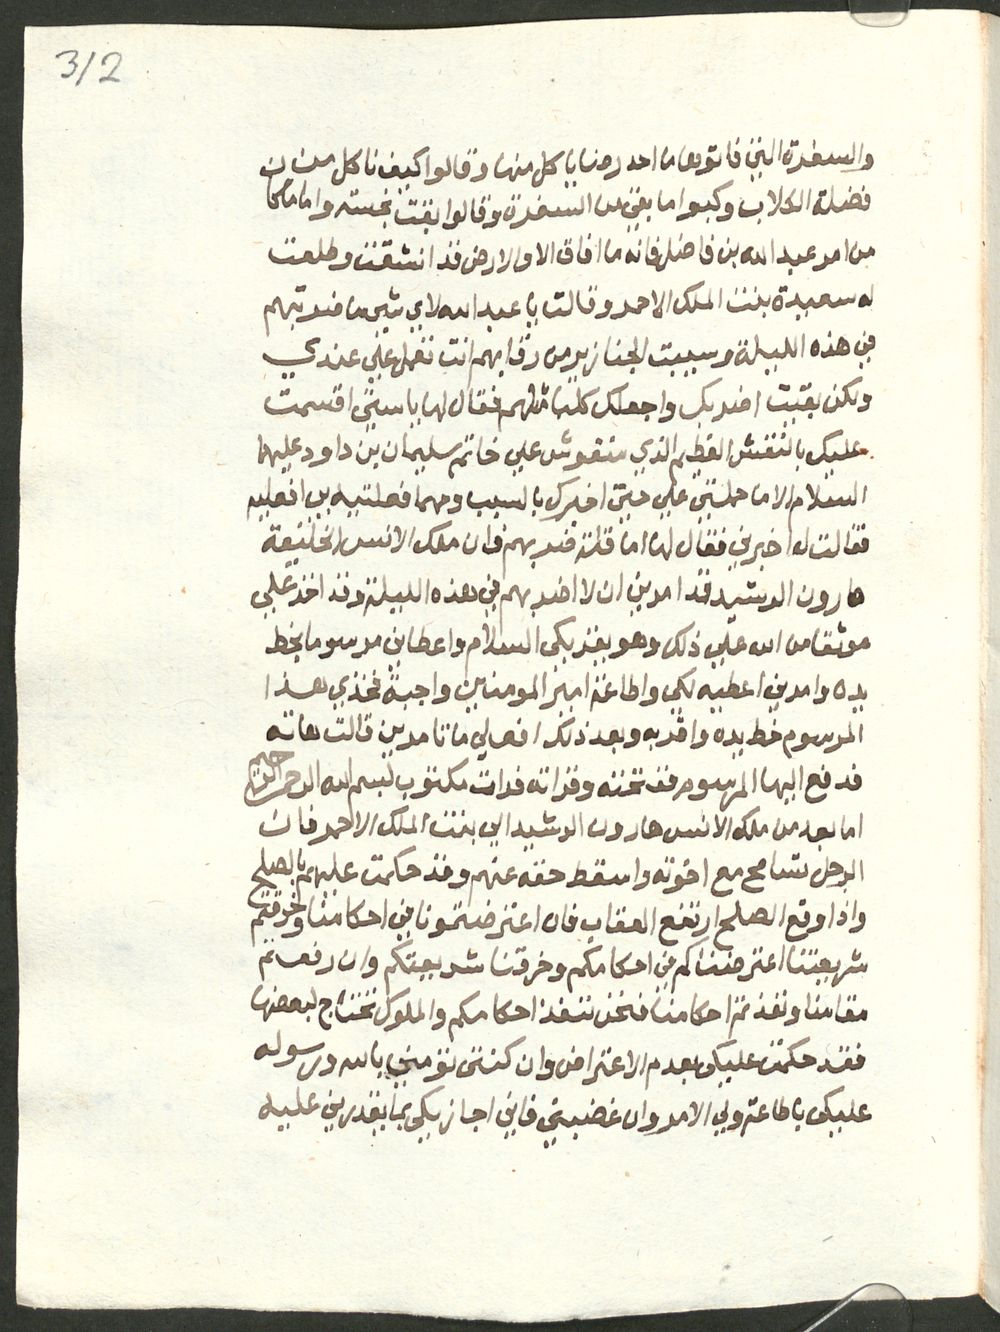 3/2
والسفرة التي فاتوها ما احد رضا ياكل منها وقالوا كيف ناكل من
فضلة الكلاب وكبوا ما بقي من السفرة وقالوا بقت نجسه واما ما كان
من امر عبد الله بن فاضل فانه ما افاق الا والارض قد انشقت وطلعت
له سعيدة بنت الملك الاحمر وقالت يا عبد الله لاي شي ما ضربتهم
في هذه الليلة وسيبت الجنازير من رقابهم انت تعمل علي عندي
ولكن بقيت اضربك واجعلك كلبا مثلهم فقال لها يا ستي اقسمت
عليك بالنقش العظيم الذي منقوش علي خاتم سليمان بن داود عليهما
السلام الا ما حملتي علي حتي اخبرك بالسبب ومهما فعلتيه بي افعليه
فقالت له اخبرني فقال لها اما قلة ضربهم فان ملك الانس الخليفة
هارون الرشيد قد امرني ان لا اضربهم في هذه الليلة وقد اخذ علي
موثقا من الله علي ذلك وهو يقريكي السلام واعطاني مرسوما بخط
يده وامرني اعطيه لكي واطاعة امير المومنين واجبة فخذي هذا
المرسوم خط يده واقريه وبعد ذلك افعلي ما تامرين قالت هاته
فدفع اليها المرسوم ففتحته وقراته فرات مكتوب بسم الله الرحمن الرحيم
اما بعد من ملك الانس هارون الرشيد الي بنت الملك الاحمر فان
الرجل تسامح مع اخوته واسقط حقه عنهم وقد حكمت عليهم بالصلح
واذا وقع الصلح ارتفع العقاب فان اعترضتمونا في احكامنا وخرقتم
شريعتنا اعترضناكم في احكامكم وخرقنا شريعتكم وان رفعتم
مقامنا ونفذتم احكامنا فنحن ننفذ احكامكم والملوك تحتاج لبعضها
فقد حكمت عليكي بعدم الاعتراض وان كنتي تؤمني بالله ورسوله
عليكي باطاعة ولي الامر وان غضبتي فاني اجازيكي بما يقدرني عليه